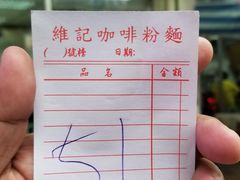 維記咖啡粉麵
( )號檯 日期:
品名 金額
51